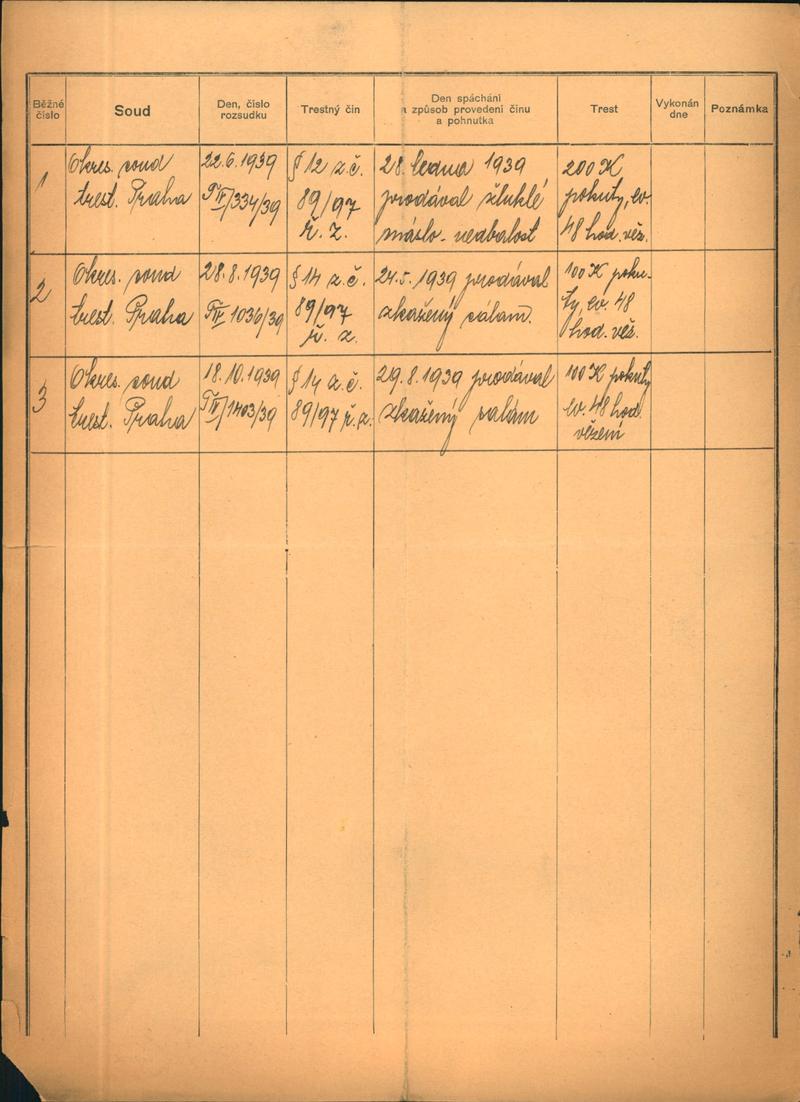 Běžné číslo
Soud
Den, číslo rozsudku
Trestný čin
Den spáchání
a způsob provedení činu
a pohnutka
Trest
Vykonán dne
Poznámka
1
Okres. soud
trest. Praha
22.6.1939
334/39
§ 12 z.č.
89/97
ř. z.
28. ledna 1939
prodával žluklé
máslo - nedbalost
200 K
pokuty, ev.
48 hod. věz.
2
Okres. soud
trest. Praha
28.8.1939
1036/39
§ 14 z.č.
89/97
ř. z.
24.5. 1939 prodával
zkažený salám.
100 K poku-
ty, ev. 48
hod. věz.
3
Okres. soud
trest. Praha
18.10.1939
1403/39
§ 14 z.č.
89/97 ř.z.
29.8.1939 prodával
zkažený salám
100 K pokuty
ev. 48 hod.
vězení